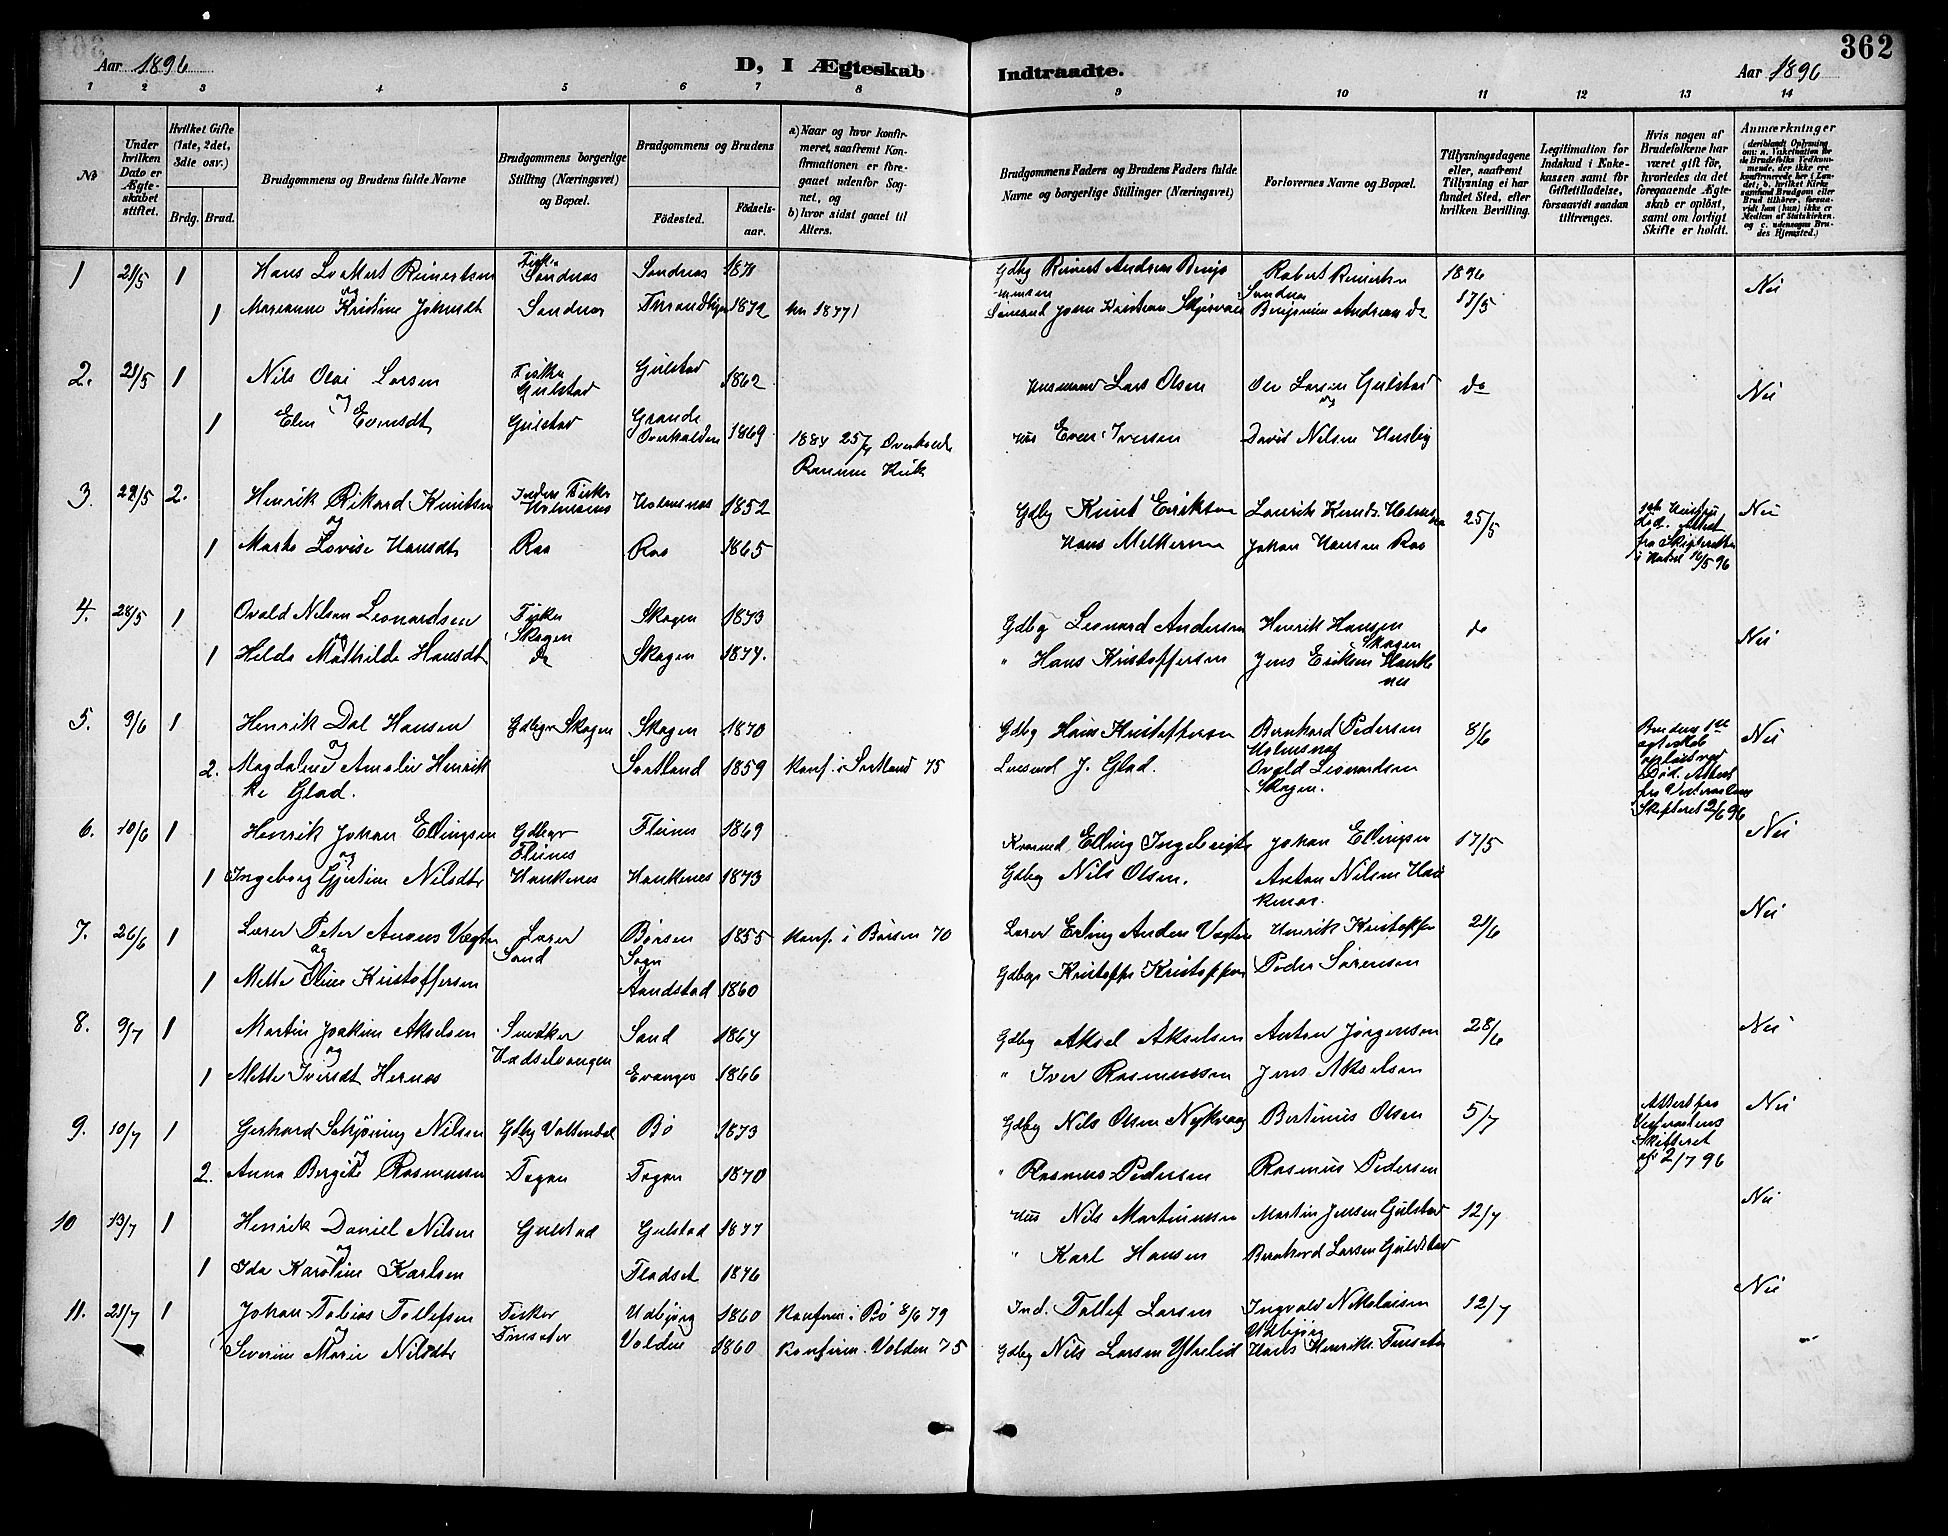 362
Aar 1896
D, I Ægteskab Indtraadte.
Aar 1896
1 2 3 4 5 6 7 8 9 10 11 12 13 14
No
Under hvilken Dato er Ægteskabet stiftet.
Hvilket Gifte (1ste, 2det, 3die osv.)
Brdg. Brud.
Brudgommens og Brudens fulde Navne
Brudgommens borgerlige Stilling (Næringsvei) og Bopæl.
Brudgommens og Brudens
Fødested.
Fødselsaar.
a) Naar og hvor konfirmeret, saafremt Konfirmationen er foregaaet udenfor Sognet, og
b) hvor sidst gaaet til Alters.
Brudgommens Faders og Brudens Faders fulde Navne og borgerlige Stillinger (Næringsvei)
Forlovernes Navne og Bopæl.
Tillysningsdagene eller, saafremt Tillysning ei har fundet Sted, efter hvilken Bevilling.
Legitimation for Indskud i Enkekassen samt for Giftetilladelse, forsaavidt saadan tiltrænges.
Hvis nogen af Brudefolkene har været gift før, hvorledes da det foregaaende Ægteskab er opløst, samt om lovligt Skifte er holdt.
Anmærkninger (deriblandt Oplysning om: a. Vakcination for de Brudefolks Vedkommende, der ikke ere konfirmerede her i Landet; b. hvilket Kirkesamfund Brudgom eller Brud tilhører, forsaavidt han (hun) ikke er Medlem af Statskirken, og c. udensogns Brudes Hjemsted.)
1 21/5 1 Hans Reinertsen Fisker Sandnes Sandnes 1871 Gdbg Reinert Andreas Robert Reinertsen 1896 Nei
og
1 Marianne Kristine Johnsdt Sandnes 1872 Johan Kristian Sandnes Benjamin Andreas do 17/5
2. 21/5 1 Nils Olai Larsen Fisker Gulstad Gulstad 1862 Husmand Lars Olsen Ole Larsen Gulstad do Nei
og
1 Elen Evensdt Gulstad Grande Overhalden 1869 1884 25/ Overhalde Ranem Kirk Hus Even Iversen David Nilsen Husby
3. 28/5 2. Henrik Rikard Knutsen Fisker Holmsnes Holmsnes 1852 Gdbg Knut Eriksen Laurits Knuds. Holmsnes 25/5 Nei
og
1 Marka Lovise Hansdt Rao Rao 1865 Hans Melkersen Johan Hansen Rao
4. 28/5 1 Ovald Nilsen Leonardsen Fisker Skagen Skagen 1873 Gdbg Leonard Andersen Henrik Hansen Skagen do Nei
og
1 Hilda Mathilde Hansdt do Skagen 1877. " Hans Kristoffersen Jens Eriksen Haukenes
5. 9/6 1 Henrik Dal Hansen Gdbgr Skagen Skagen 1870 Gdbg Hans Kristoffersen Bernhard Pedersen Holmsnes 8/6 Brudens 1ste ægteskab opløst ved Død. Attest fra Vesteraalens Skifteret 2/6 96 Nei
og
2. Magdalene Amalie Henrikke Glad. Sortland 1859 Konf. i Sortland 75 Lensmd J. Glad. Ovald Leonardsen Skagen.
6. 10/6 1 Henrik Johan Ellingsen Gdbgr Fleines Fleines 1869 Elling Ingebrigts Johan Ellingsen 17/5 Nei
og
1 Ingeborg Gjertine Nilsdtr Haukenes Haukenes 1873 Gdbg Nils Olsen. Anton Nilsen Haukenes.
7. 26/6 1 Lærer Peter Arons Vægter Lærer Sand Børsen Sogn 1855 Konf. i Børsen 70 Lærer Erling Anders Vægter Henrik Kristoffer 21/6 Nei
og
1 Mette Oline Kristoffersen Aandstad 1860 Gdbgr Kristoffer Kristoffersen Peder Sørensen
8. 9/7 1 Martin Joakim Akselsen Snedker Hadselvangen Sand 1867 Gdbg Aksel Akselsen Anton Jørgensen 28/6 Nei
og
1 Mette Iversdt Hernes Evanger 1866 " Iver Rasmussen Jens Akselsen
9. 10/7 1 Gerhard Schjøning Nilsen Gdbg Vottendal Bø 1873 Gdbg Nils Olsen Nykvaag Bertinius Olsen 5/7 Attest fra Vesteraalens Skifteret af 2/7 96 Nei
og
2. Anna Bergite Rasmussen Fagan Fagan 1870 " Rasmus Pedersen Rasmus Pedersen
10 13/7 1 Henrik Daniel Nilsen Gulstad Gulstad 1877 Hus Nils Martinussen Martin Jensen Gulstad 12/7 Nei
og
1 Ida Karoline Karlsen Fladset 1876 " Karl Hansen Bernhard Larsen Guldstad
11. 21/7 1 Johan Tobias Tollefsen Fisker Finsæter Utbjørg 1860 Konfirm. i Bø 8/6 79 Ind. Tollef Larsen Ingvald Nikolaisen Utbjørg 12/7 Nei
og
1 Severine Marie Nilsdtr Volden 1860 Konfirm. Volden 75 Gdbg Nils Larsen Ytrelid Hans Henriks. Finsæter